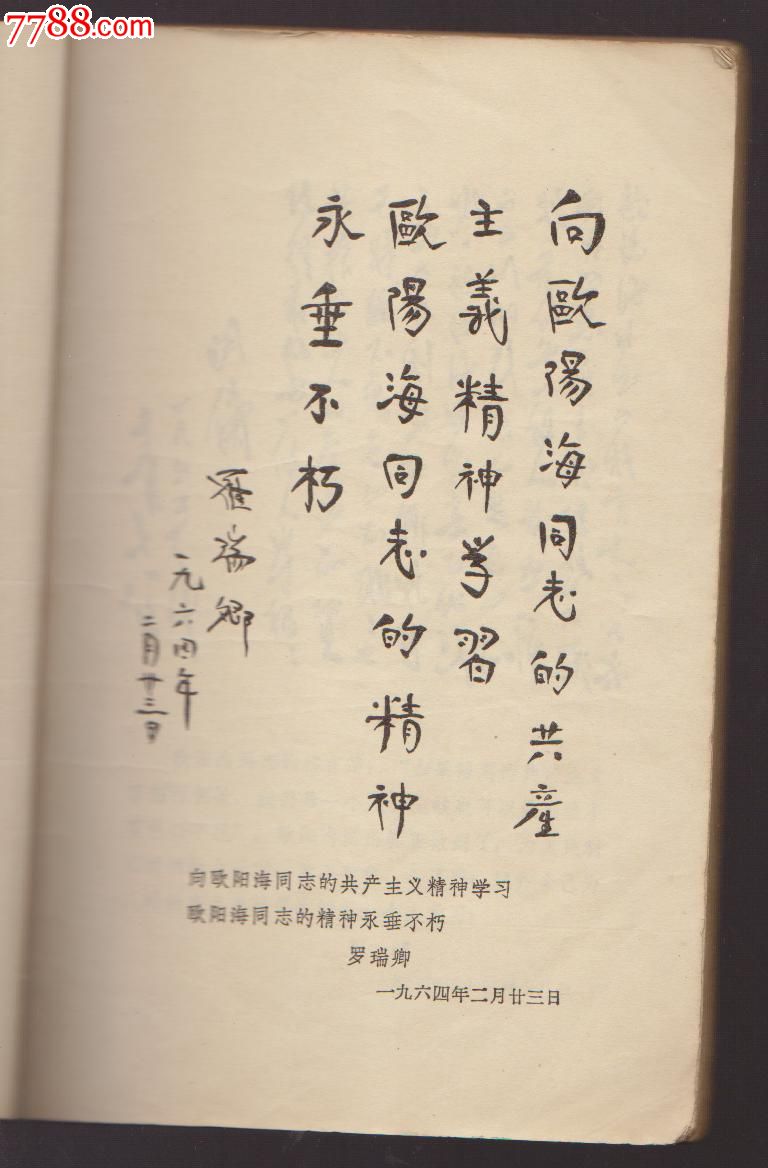 7788.com
向歐陽海同志的共產
主義精神学習
歐陽海同志的精神
永垂不朽
羅瑞卿
一九六四年
二月廿三日
向欧阳海同志的共产主义精神学习
欧阳海同志的精神永垂不朽
罗瑞卿
一九六四年二月廿三日